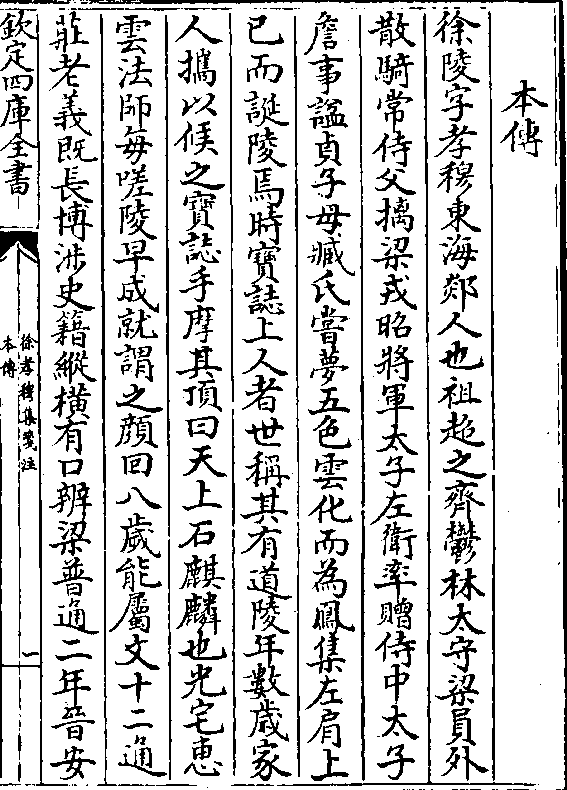 本傳
徐陵字孝穆東海郯人也祖超之齊鬱林太守梁員外
散騎常侍父摛梁戎昭將軍太子左衛率贈侍中太子
詹事諡貞子母臧氏嘗夢五色雲化而為鳳集左肩上
已而誕陵焉時寶誌上人者世稱其有道陵年數歲家
人攜以候之寶誌手摩其頂曰天上石麒麟也光宅惠
雲法師每嗟陵早成就謂之顔回八歲能屬文十二通
莊老義既長博涉史籍縱橫有口辨梁普通二年晉安
欽定四庫全書
徐孝穆集箋注
本傳
一